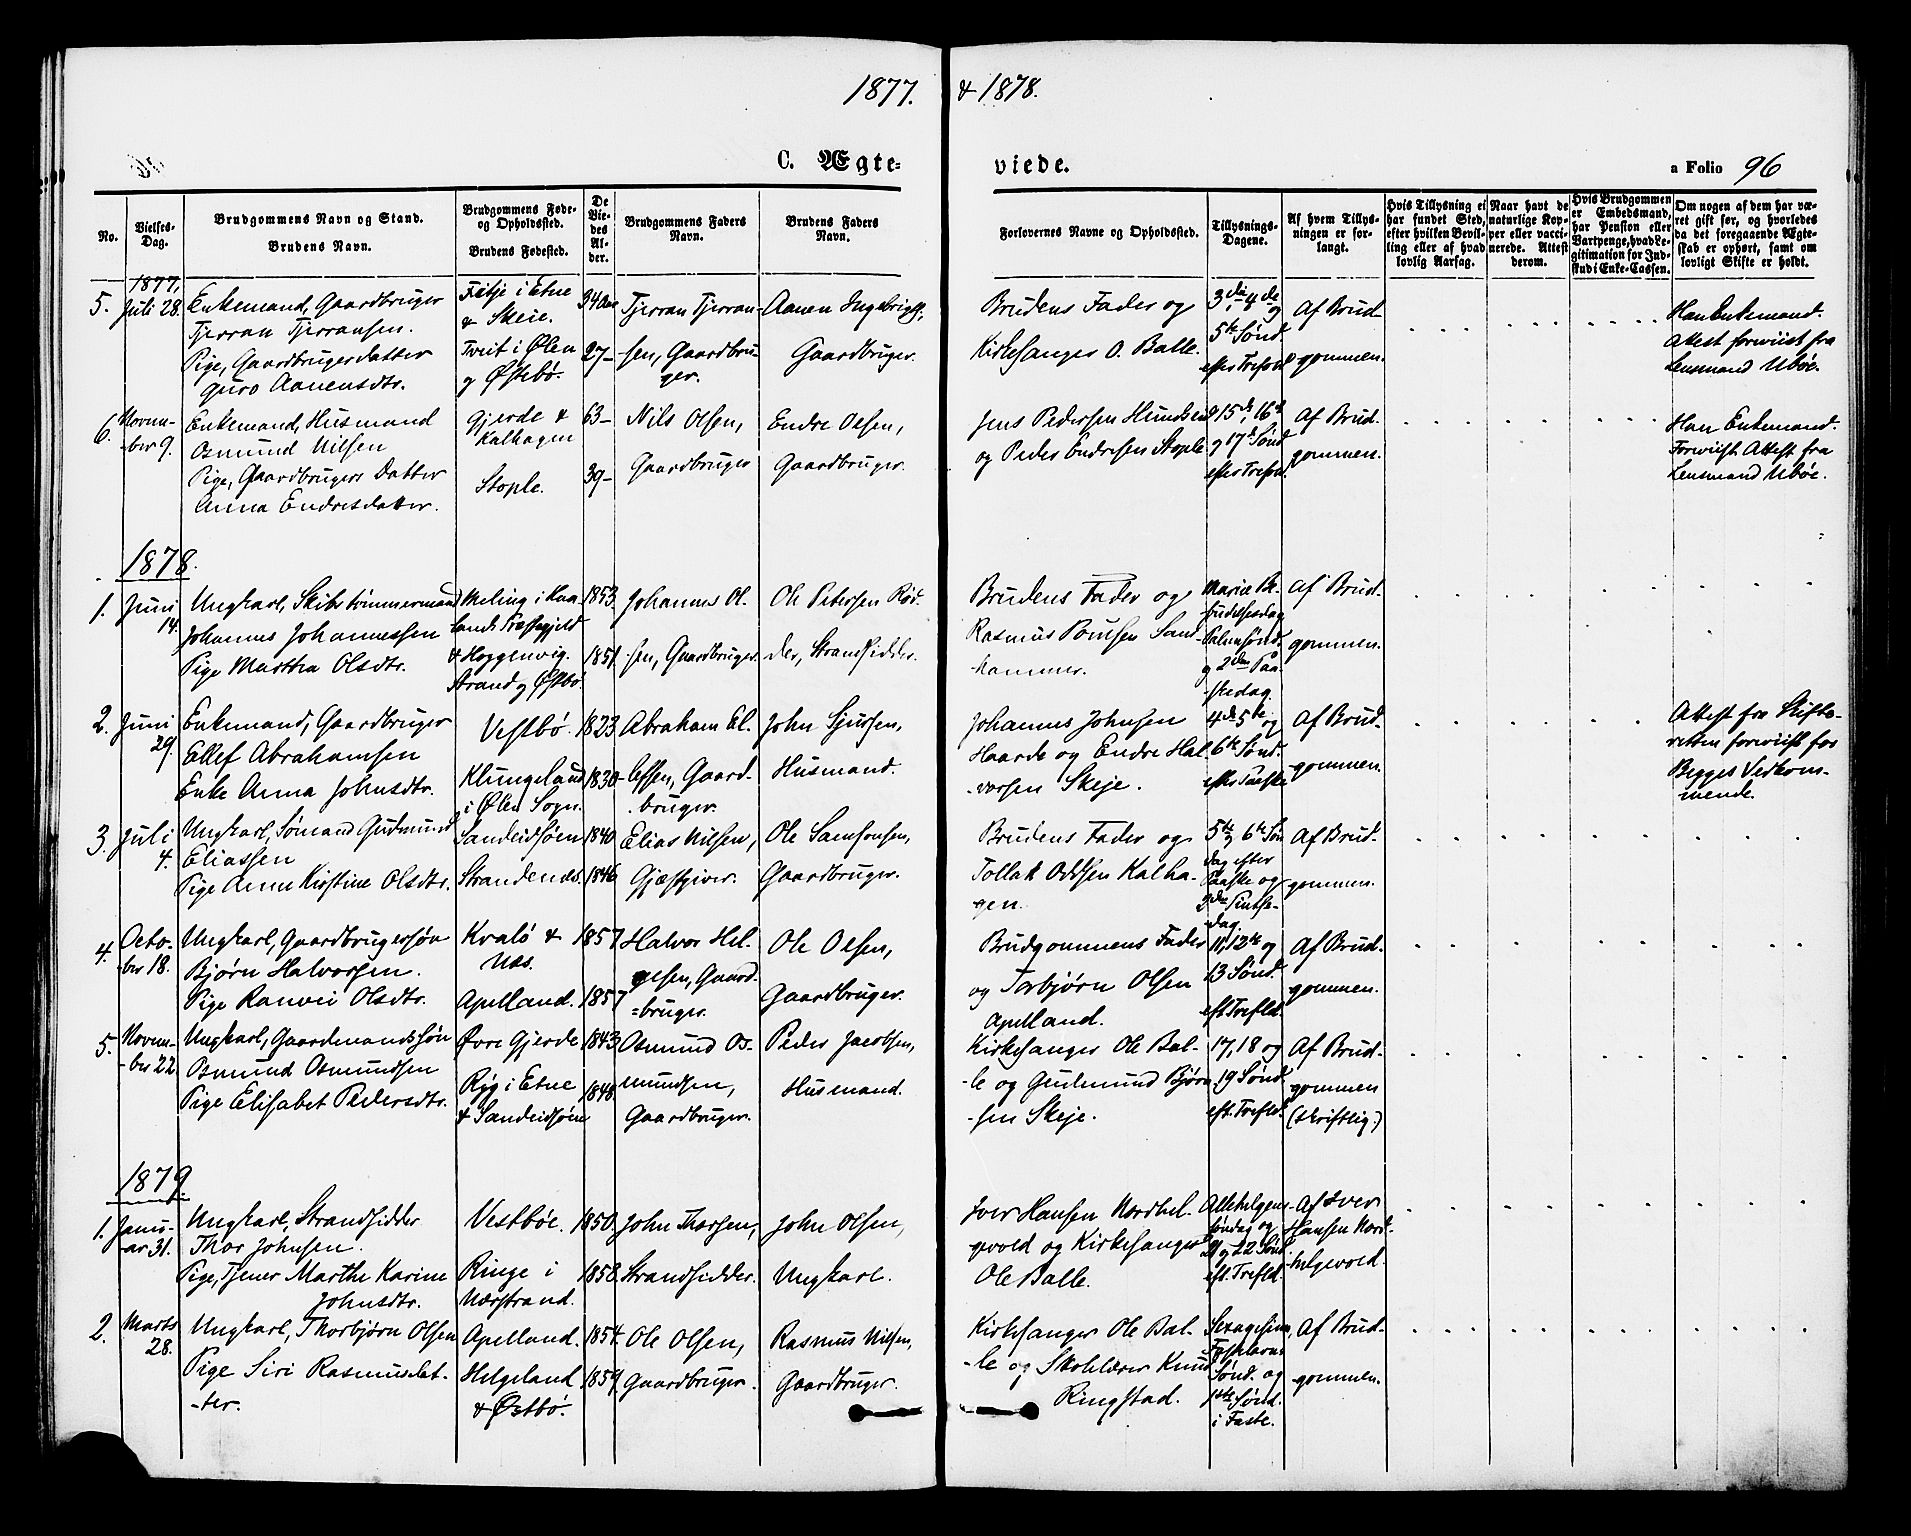 1877. & 1878.
C. Ægte-
viede.
a Folio 96
No.
Vielses-Dag.
Brudgommens Navn og Stand.
Brudens Navn.
Brudgommens Føde- og Opholdssted.
Brudens Fødested.
De Viedes Alder.
Brudgommens Faders Navn.
Brudens Faders Navn.
Forlovernes Navne og Opholdssted.
Tillysnings-Dagene.
Af hvem Tillysningen er forlangt.
Hvis Tillysning ei har fundet Sted, efter hvilken Bevilling eller af hvad lovlig Aarsag.
Naar havt de naturlige Kopper eller vaccinerede. Attest derom.
Hvis Brudgommen er Embedsmand, har Pension eller Vartpenge, hvad Legitimation for Indskud i Enke-Cassen.
Om nogen af dem har været gift før, og hvorledes da det foregaaende Ægteskab er ophørt, samt om lovligt Skifte er holdt.
1877.
5. Juli 28.
Enkemand, Gaardbruger
Tjerran Tjerransen.
Pige, Gaardbrugerdatter
Guro Aanensdtr.
Fitje i Etne
& Skeie.
Tveit i Ølen
og Østebö.
34 Aar
27-
Tjerran Tjerran-
sen, Gaardbru-
ger.
Aanen Ingebrigts.,
Gaardbruger.
Brudens Fader og
Kirkesanger O. Balle.
3die, 4de og
5te Sønd.
efter Trefold.
Af Brud-
gommen.
Han Enkemand.
Attest forviist fra
Lensmand Ubøe.
6. Novem-
-ber 9.
Enkemand, Husmand
Osmund Nilsen
Pige, Gaardbrugers Datter
Anna Endresdatter.
Gjerde &
Kalhagen
Stople.
63-
39-
Nils Olsen,
Gaardbruger
Endre Olsen,
Gaardbruger.
Jens Pedersen Hundseid
og Peder Endresen Stople
15de, 16de
og 17de Sønd.
efter Trefold.
Af Brud-
gommen.
Han Enkemand.
Forviist Attest fra
Lensmand Ubøe.
1878.
1. Juni
14.
Ungkarl, Skibstømmermand
Johannes Johannessen
Pige Martha Olsdtr.
Meling i Kaa-
lands Præstegjeld
& Hoggenvig.
Strand og Østbö.
1853.
1851.
Johannes Ol-
sen, Gaardbruger.
Ole Petersen Rød-
der, Strandsidder.
Brudens Fader og
Rasmus Poulsen Sand-
hammer.
Mariæ Be-
budelsesdag
Palmesønd.
og 2den Paa-
skedag.
Af Brud-
gommen.
2. Juni
29.
Enkemand, Gaardbruger
Ellef Abrahamsen
Enke Anna Johnsdtr.
Vestbö.
Klungeland
i Ølen Sogn.
1823
1830-
Abraham El-
lefsen, Gaard-
bruger.
John Sjursen,
Husmand.
Johannes Johnsen
Haarde og Endre Hal-
vorsen Skeje.
4de 5te og
6te Sønd.
efter Paaske
Af Brud-
gommen.
Attest fra Skifte-
retten forviist for
Begges Vedkom-
mende.
3. Juli
4.
Ungkarl, Sømand Gudmund
Eliassen
Pige Anne Kirstine Olsdtr.
Sandeidsøen
Strandenæs.
1840
1846
Elias Nilsen,
Gjæstgiver.
Ole Samsonsen,
Gaardbruger.
Brudens Fader og
Tollak Oddsen Kalha-
gen.
5te og 6te Søn-
dag efter
Paaske og
2den Pintse-
dag.
Af Brud-
gommen.
4. Octo-
-ber 18.
Ungkarl, Gaardbrugersøn
Bjørn Halvorsen.
Pige Ranvei Olsdtr.
Kvalö &
Næs.
Apelland.
1857
1857
Halvor Hel-
gesen, Gaard-
=bruger.
Ole Olsen,
Gaardbruger.
Brudgommens Fader
og Torbjørn Olsen
Apelland.
11, 12te og
13 Sønd.
eft. Trefld.
Af Brud-
gommen.
5. Novem-
-ber 22
Ungkarl, Gaardmandssøn
Osmund Osmundsen
Pige Elisabet Pedersdtr.
Øvre Gjerde
Ryg i Etne
& Sandeidsøen
1843
1848
Osmund Os-
mundsen,
Gaardbruger.
Peder Jacobsen,
Husmand.
Kirkesanger Ole Bal-
-le og Gudmund Bjørn-
-sen Skeje.
17, 18 og
19 Sønd.
eft. Trefld.
Af Brud-
gommen
(skriftlig.)
1879.
1. Janu-
-ar 31.
Ungkarl, Strandsidder
Thor Johnsen.
Pige, Tjener Marthe Karine
Johnsdtr.
Vestbøe.
Ringe i
Nærstrand.
1850.
1858.
John Thorsen,
Strandsidder.
John Olsen,
Ungkarl.
Iver Hansen Nordhel-
gevold og Kirkesanger
Ole Balle.
Allehelgens-
søndag og
21 og 22 Sønd.
eft. Trefld.
Af Iver
Hansen Nord-
helgevold.
2. Marts
28.
Ungkarl, Thorbjørn Olsen
Pige Siri Rasmusdat-
-ter.
Apelland.
Helgeland
& Østbö.
1854.
1859
Ole Olsen,
Gaardbruger.
Rasmus Nilsen,
Gaardbruger.
Kirkesanger Ole Bal-
-le og Skolelærer Knud
Ringstad.
Sexagesima,
Fastelavns
Sønd. og
1ste Sønd.
i Faste.
Af Brud-
gommen.